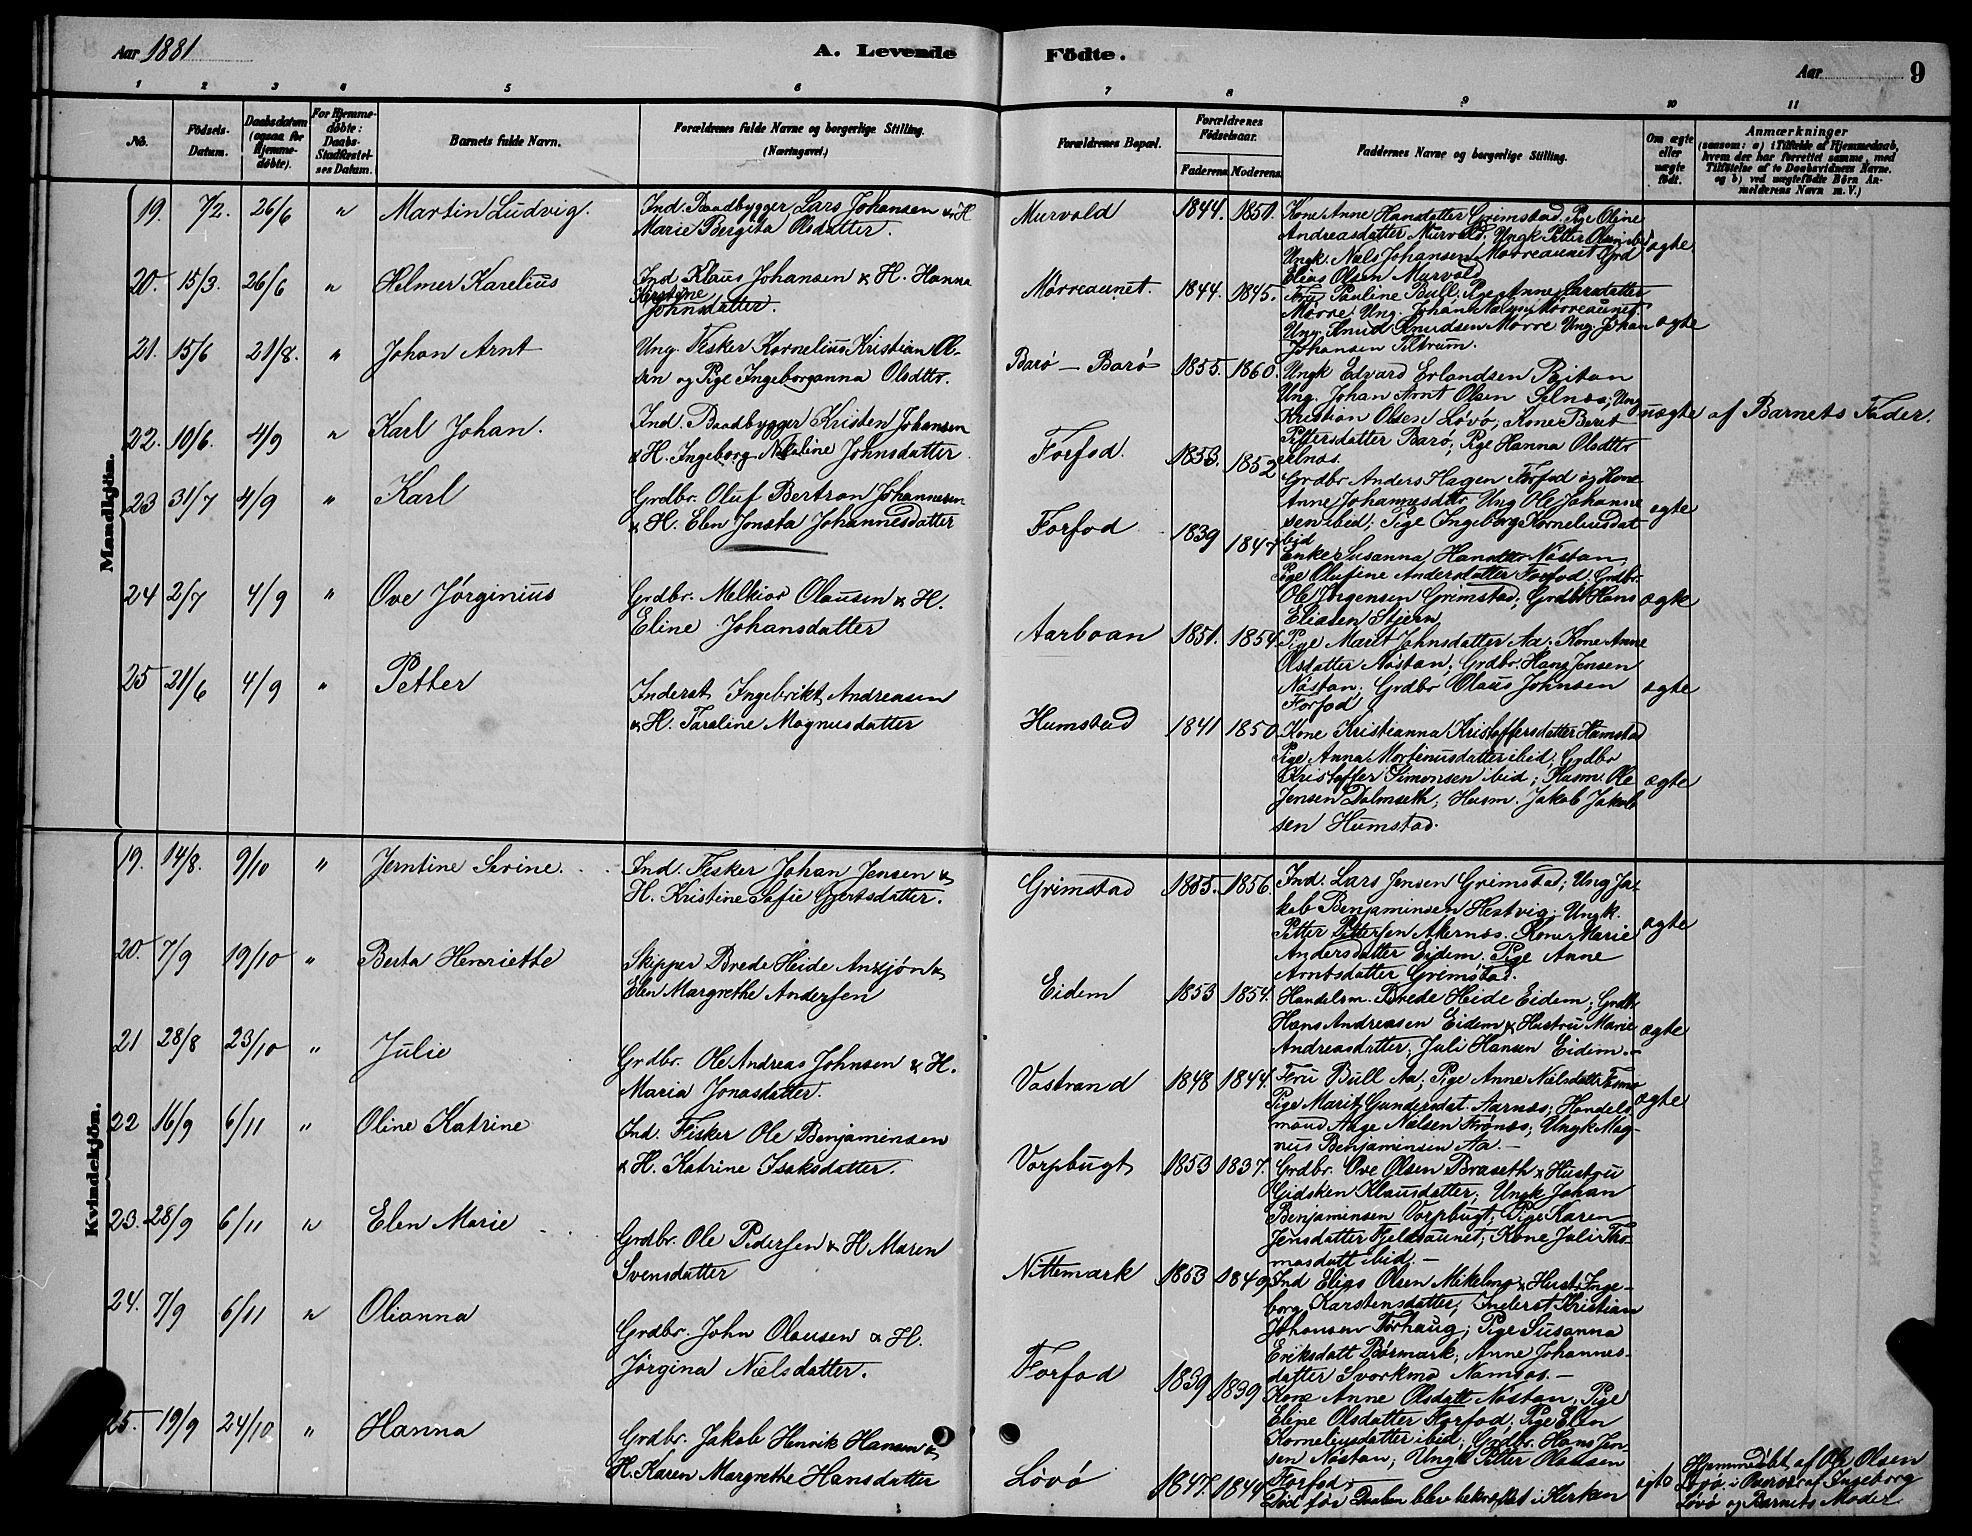 Aar 1881
A. Levende
Födte.
Aar
9
1 2 3 4 5 6 7 8 9 10 11
No.
Födsels-
Datum.
Daabsdatum
(ogsaa for
Hjemme-
döbte).
For Hjemme-
döbte:
Daabs-
Stadfæstel-
ses Datum.
Barnets fulde Navn.
Forældrenes fulde Navne og borgerlige Stilling.
(Næringsvei.)
Forældrenes Bopæl.
Forældrenes
Födselsaar.
Faderens. Moderens.
Faddernes Navne og borgerlige Stilling.
Om ægte
eller
uægte
födt.
Anmærkninger
(saasom: a) i Tilfælde af Hjemmedaab,
hvem der har forrettet samme, med
Tilföielse af to Daabsvidners Navne.
og b) ved uægtefödte Börn An-
melderens Navn m. V.)
Mandkjön.
19. 7/2. 26/6 " Martin Ludvig.
Ind. Baadbygger Lars Johansen & H
Marie Bergita Olsdatter.
Murvold 1844. 1851.
Kone Anne Hansdatter Grimstad. Pige Oline
Andreasdatter Murvold; Ungk Petter Olsen ibid
Ungk. Nels Johansen Mørreaunet Grd
Elias Olsen Murvold
ægte
20. 15/3. 26/6 " Helmer Karelius
Ind Klaus Johansen & H. Hanna
Kirstine
Johnsdatter.
Mørreaunet. 1844. 1845.
Fru Pauline Bull; Pige Anne Larsdatter
Mørre. Ung. Johan Nielsen Mørreaunet.
Ung. Knud Knudsen Mørre Ung. Johan
Johansen Tiltrum.
ægte
21. 15/6 21/8. " Johan Arnt
Ung. Fisker Kornelius Kristian Ol-
sen og Pige Ingeborganna Olsdttr.
Barø — Barø 1855. 1860.
Ungk Edvard Erlandsen Reitan
Ung. Johan Arnt Olsen Selnæs; Ung
Kristian Olsen Løvø, Kone Beret
Pettersdatter Barø; Pige Hanna Olsdttr
Selnæs.
uægte af Barnets Fader.
22. 10/6. 4/9 " Karl Johan.
Ind. Baadbygger Kristen Johansen
& H. Ingeborg Nikoline Johnsdatter
Forfod. 1853. 1852
Grdbr Anders Hagen Forfod og Kone
Anne Johannesdttr Ung Ole Johanne
sen ibid; Pige Ingeborg Korneliusdat
ibid
ægte
23 31/7 4/9 " Karl
Grdbr. Oluf Bertran Johannesen
& H. Elen Jonsta Johannesdatter
Forfod 1839 1847
Enke Susanna Hansdttr Nøstan,
Pige Olufine Andersdatter Forfod; Grdbr.
Ole Jørgensen Grimstad; Grdbr Hans
Eliasen Stjern
ægte
24 2/7 4/9 " Ove Jørginius
Grdbr. Melkior Olausen & H.
Eline Johansdatter
Aarboan 1851. 1854.
Pige Maret Johnsdatter Aa; Kone Anne
Olsdatter Nøstan; Grdbr. Hans Jensen
Nøstan; Grdbr Olaus Johnsen
Forfod
ægte
25 21/6 4/9 " Petter
Inderst Ingebrikt Andreasen
& H. Taraline Magnusdatter
Humstad 1841 1850.
Kone Kristianna Kristoffersdatter Humstad
Pige Anna Mortenusdatter ibid; Grdbr
Kristoffer Simonsen ibid; Husm. Ole
Jensen Dalmseth; Husm. Jakob Jakob
sen Humstad.
ægte
Kvindekjön.
19. 14/8. 9/10 " Jerntine Serine.
Ind. Fisker Johan Jensen &
H. Kristine Sofie Gjertsdatter.
Grimstad 1855. 1856.
Ind. Lars Jensen Grimstad; Ung Ja-
kob Benjaminsen Hestvig; Ungk.
Petter Pettersen Akernæs. Kone Marie
Andersdatter Eidem. Pige Anne
Arntsdatter Grimstad.
ægte
20. 7/9 19/10 " Berta Henriette
Skipper Brede Heide Anzjön &
Elen Margrethe Andersen
Eidem 1853 1854.
Handelsm. Brede Heide Eidem; Grdb.
Hans Andreasen Eidem & Hustru Marie
Andreasdatter; Juli Hansen Eidem. —
ægte
21 28/8 23/10 " Julie
Grdbr. Ole Andreas Johnsen & H.
Maria Jonasdatter.
Vastrand 1848 1844.
Fru Bull Aa; Pige Anne Nielsdatt
Pige Marit Gundersdat. Aarnæs; Handels
mand Aage Nielsen Frønæs; Ungk Mag-
nus Benjaminsen Aa. —
ægte
22 16/9 6/11 " Oline Katrine
Ind. Fisker Ole Benjaminsen
& H. Katrine Isaksdatter.
Vorpbugt 1853 1837.
Grdbr. Ove Olsen Braseth & Hustru
Gidsken Klausdatter; Ungk Johan
Benjaminsen Vorpbugt; Pige Karen
Jensdatter Fjeldaunet; Kone Juli Tho-
masdatt ibid. —
23. 28/9 6/11 " Elen Marie
Grdbr. Ole Pedersen & H. Maren
Svensdatter
Nittemark 1853 1849
Ind Elias Olsen Mikelmo & Hust. Inge-
borg Karstensdatter; Inderst Kristian
Johansen Tørhaug; Pige Susanna
Eriksdatt Børmark; Anne Johannes-
datter Svorkmo Namsos. —
24. 7/9 6/11 " Olianna
Grdbr. John Olausen & H.
Jørgina Nielsdatter.
Forfod 1839 1839
Kone Anne Olsdatt Nøstan; Pige
Eline Olsdatter Forfod; Pige Elen
Korneliusdatter ibid; Grdbr. Hans Jen-
sen Nøstan; Ungk Petter Olausen
Forfod. —
25. 19/9 24/10 " Hanna
Grdbr. Jakob Henrik Hansen &
H. Karen Margrethe Hansdatter
Løvø 1847. 1844
Død før Daaben blev bekræftet i Kirken
ægte
Hjemmedøbt af Ole Olsen
Løvø, i Overvær af Ingeborg
Løvø og Barnets Moder